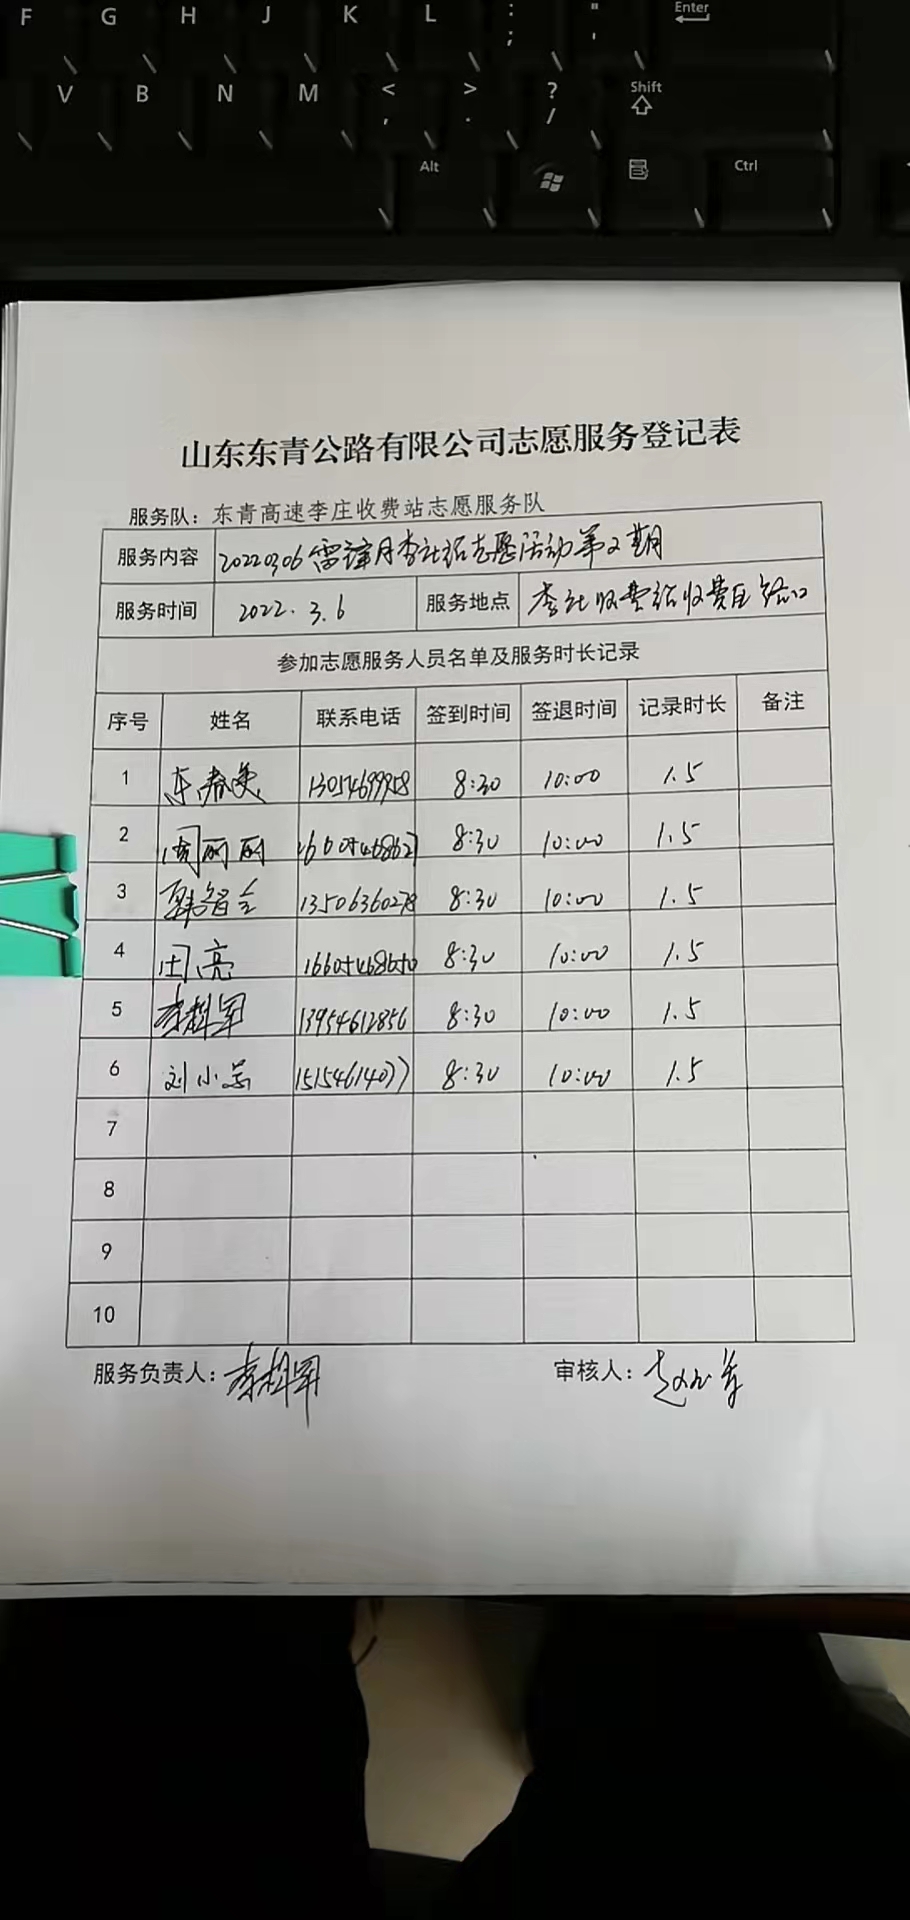 F G H J K L : ; " ' Enter
V B N M < , > . ? / Shift
Alt Ctrl
山东东青公路有限公司志愿服务登记表
服务队：东青高速李庄收费站志愿服务队
服务内容 20220306雷锋月李庄站志愿活动第2期
服务时间 2022.3.6 服务地点 李庄收费站收费区
参加志愿服务人员名单及服务时长记录
序号 姓名 联系电话 签到时间 签退时间 记录时长 备注
1 8:30 10:00 1.5
2 周丽丽 8:30 10:00 1.5
3 13506360278 8:30 10:00 1.5
4 亮 8:30 10:00 1.5
5 李科军 13954612856 8:30 10:00 1.5
6 刘小 15154614077 8:30 10:00 1.5
7
8
9
10
服务负责人：李科军 审核人：赵